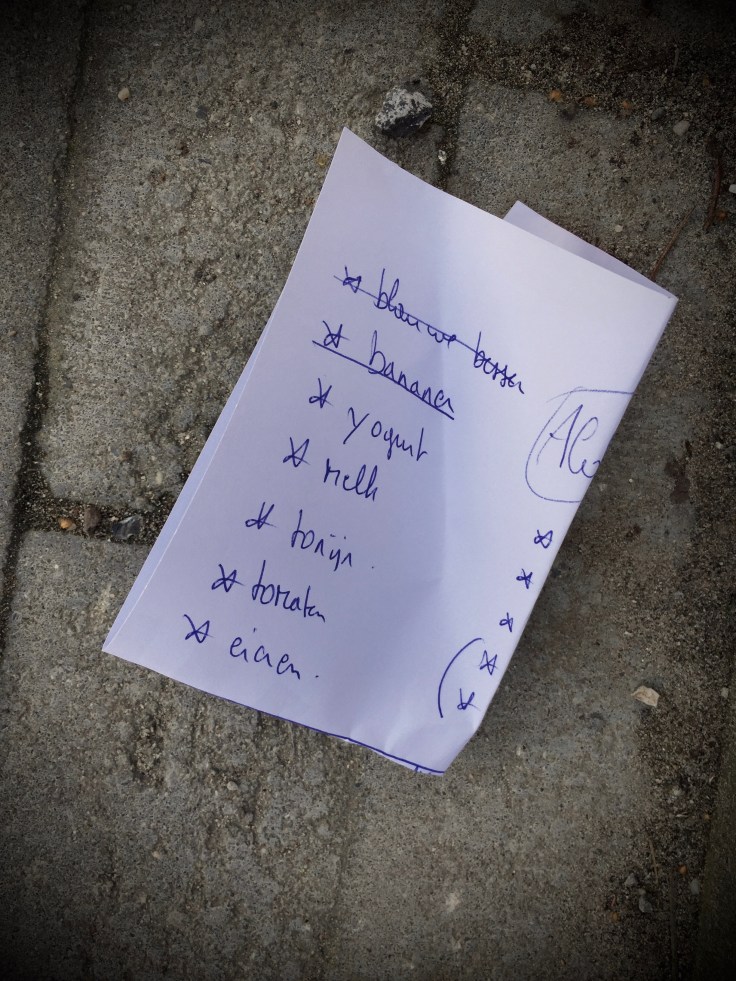 blauwe bessen
bananen
yogurt
melk
tonijn.
tomaten
eieren.